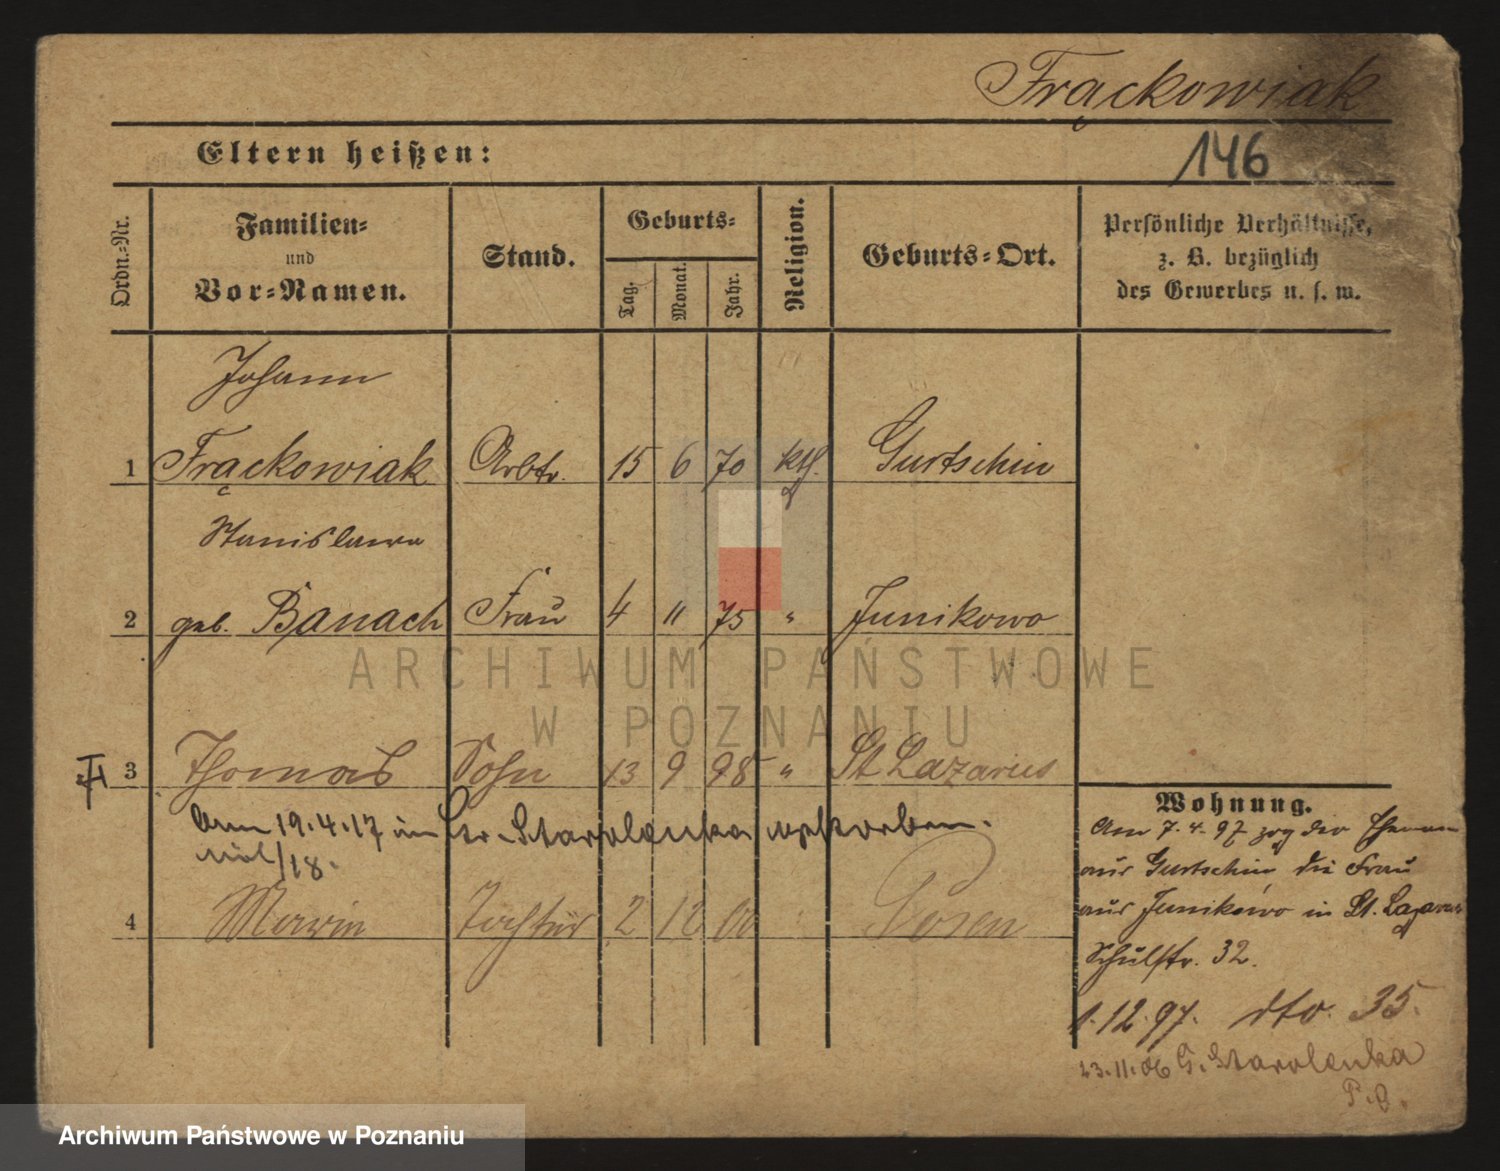 Frąckowiak
Eltern heißen:
146
Ordn.=Nr.
Familien=
und
Vor=Namen.
Stand.
Geburts=
Tag.
Monat.
Jahr.
Religion.
Geburts=Ort.
Persönliche Verhältnisse,
z. B. bezüglich
des Gewerbes u. s. w.
Johann
1 Frąckowiak Arbtr. 15 6 70 kth. Gurtschin
Stanislawa
2 geb. Banach Frau 4 11 75 " Junikowo
ARCHIWUM PAŃSTWOWE
W POZNANIU
3 Thomas Sohn 13 9 98 " St Lazarus
Am 19.4.17 in Gr. Starolenka verstorben.
/18.
4 Tochter 2 12 00 " Posen
Wohnung.
Am 7.4.97 zog der Ehemann
aus Gurtschin die Frau
aus Junikowo in St. Lazarus
Schulstr. 32.
1.12.97. dto. 35.
23.11.06 G. Starolenka
P.O.
Archiwum Państwowe w Poznaniu